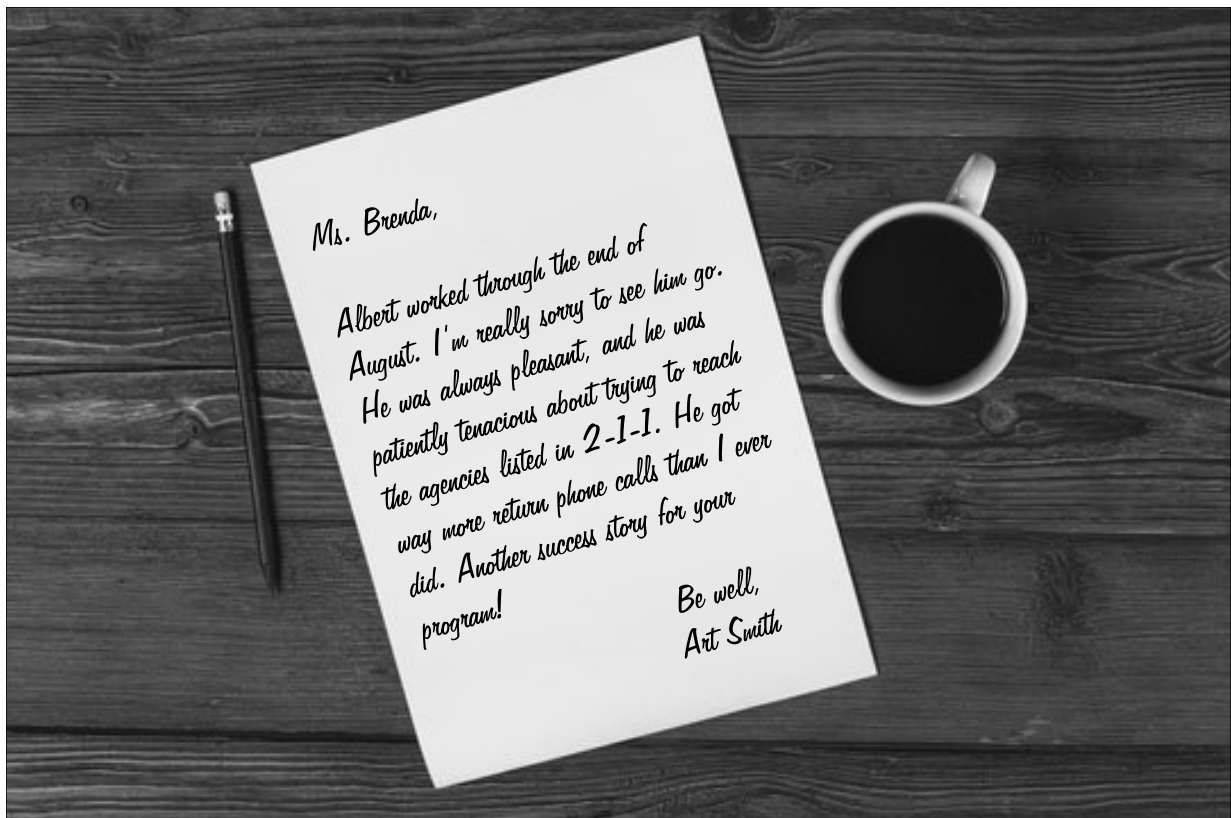 Ms. Brenda,
Albert worked through the end of
August. I'm really sorry to see him go.
He was always pleasant, and he was
patiently tenacious about trying to reach
the agencies listed in 2-1-1. He got
way more return phone calls than I ever
did. Another success story for your
program!
Be well,
Art Smith